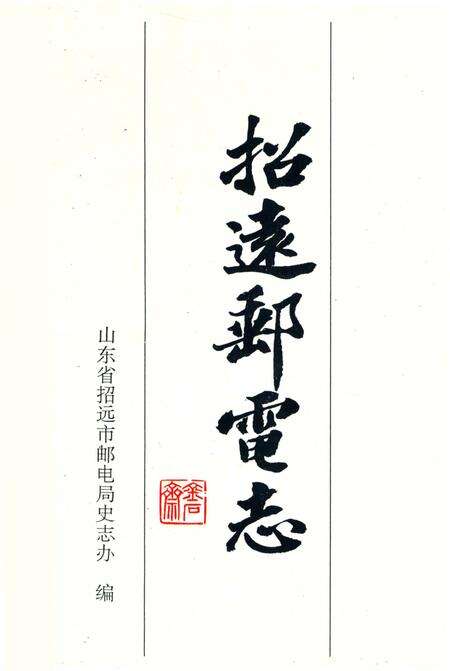 招遠郵電志
山东省招远市邮电局史志办 编